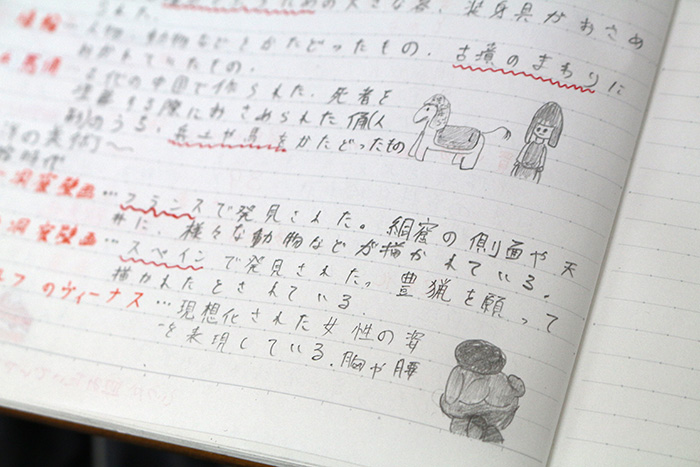 ための大きな器、装身具がおさめ
られた。
埴輪…人物、動物などをかたどったもの。古墳のまわりに
おかれていたもの。
兵馬俑…古代の中国で作られた、死者を
埋葬する際におさめられた俑(人
形)のうち、兵士や馬をかたどったもの
洋の美術〜
時代
洞窟壁画…フランスで発見された。網窟の側面や天
井に、様々な動物などが描かれている。
洞窟壁画…スペインで発見された。豊猟を願って
描かれたとされている。
ルフのヴィーナス…現想化された女性の姿
を来現している。胸や腰